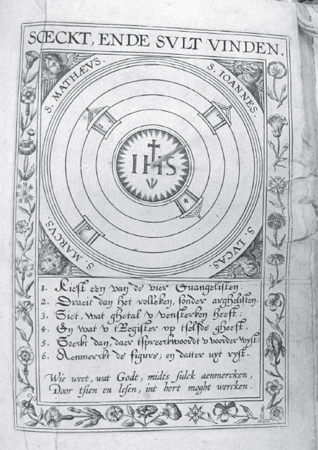 SOECKT, ENDE SVLT VINDEN.
S. MATHÆVS.
S. IOANNES.
IHS
S. MARCVS.
S. LVCAS.
1. Kiest een van de vier Euangelisten
2. Draeit dan het rolleken, sonder arghelisten.
3. Siet, wat ghetal v vensterken heeft:
4. En wat v tRegister op tselfde gheeft.
5. Soeckt dan, daer tspreeckwoordt v voorder wyst:
6. Aenmerckt de figure; en datter wyt ryst.
Wie weet, wat Godt, midts sulck aenmercken,
Door tsien en lesen, int hert moght wercken.